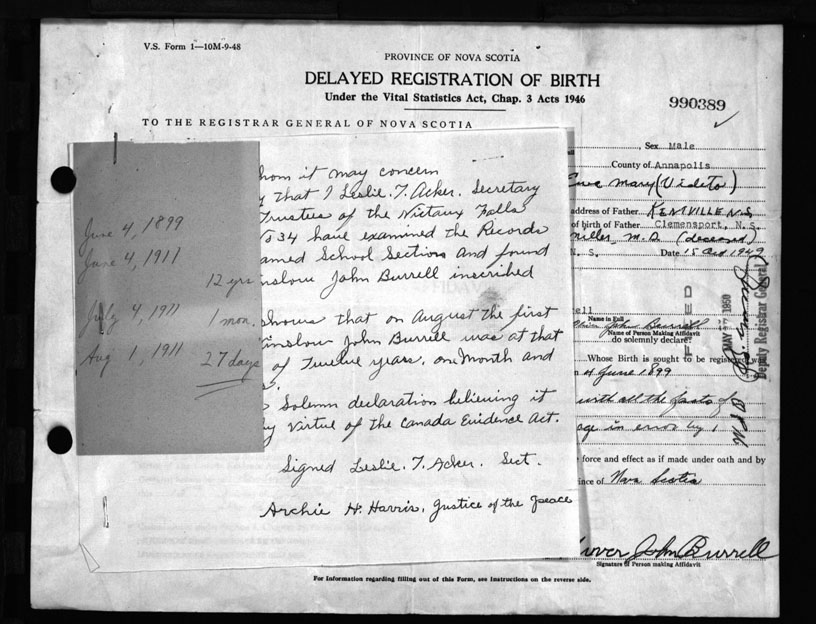 V.S. Form 1—10M-9-48
PROVINCE OF NOVA SCOTIA
DELAYED REGISTRATION OF BIRTH
Under the Vital Statistics Act, Chap. 3 Acts 1946
990389
TO THE REGISTRAR GENERAL OF NOVA SCOTIA
June 4, 1899
June 4, 1911
12 yrs
July 4, 1911
1 mon.
Aug 1, 1911
27 days
hom it may concern
y that I Leslie. T. Acker. Secretary
Trustees of the Nictaux Falls
No 34 have examined the Records
amed School Section and found
inslow John Burrell inscribed
shows that on August the first
inslow John Burrell was at that
of Twelve years, one Month and
s.
Solemn declaration believing it
y Virtue of the Canada Evidence Act.
Signed Leslie. T. Acker. Sect.
Archie H. Harris, Justice of the Peace
, Sex Male
County of Annapolis
Mary (Videto)
address of Father KENTVILLE N.S.
of birth of Father Clementsport, N.S.
M.D. (deceased)
N. S. Date 15 Oct 1949
ell
Name in Full
John Burrell
Name of Person Making Affidavit
do solemnly declare:
Whose Birth is sought to be registered was
of June 1899
with all the facts of
age in error by 1
force and effect as if made under oath and by
ince of Nova Scotia
John Burrell
Signature of Person making Affidavit
FILED
MAY 1950
Deputy Registrar General
For Information regarding filling out of this Form, see Instructions on the reverse side.